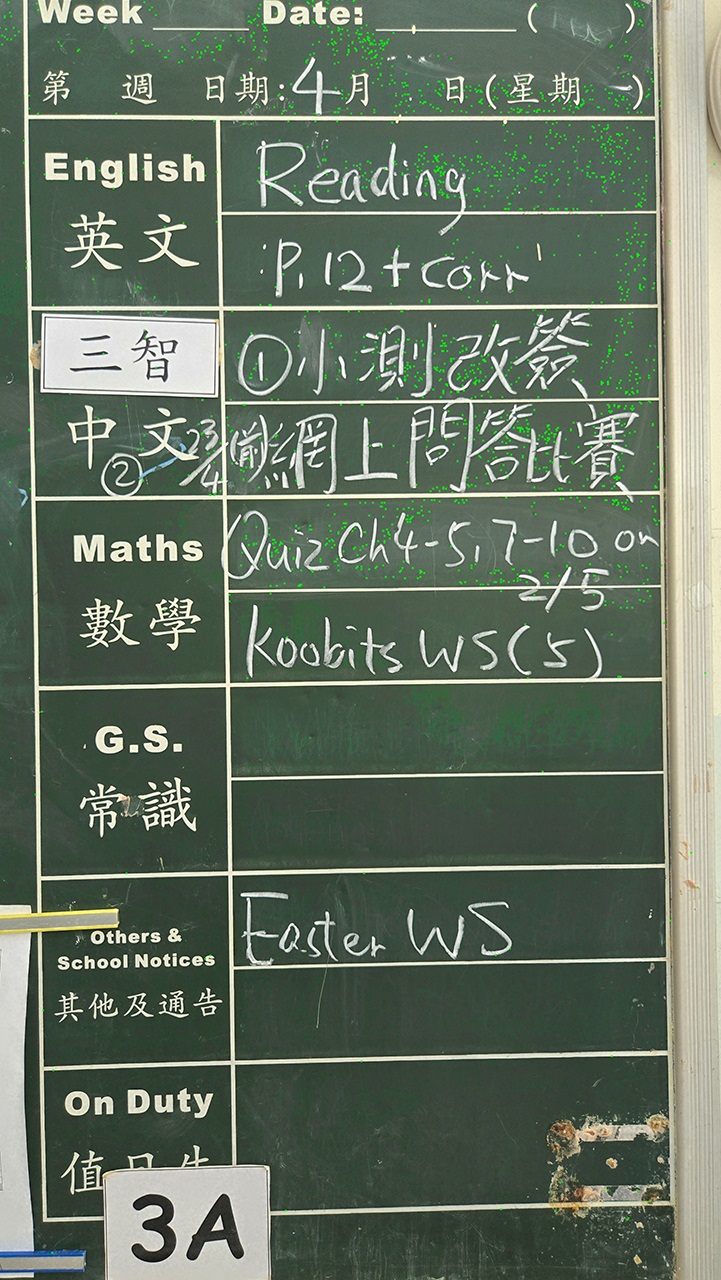 Week Date: ( )
第 週 日期: 4月 日(星期 一)
English
英文
Reading
P. 12 + corr'
三智
中文
① 小測改簽
② 23/4前網上問答比賽
Maths
數學
Quiz Ch4-5, 7-10 on
2/5
Koobits WS(5)
G.S.
常識
Others &
School Notices
其他及通告
Easter WS
On Duty
值日生
3A